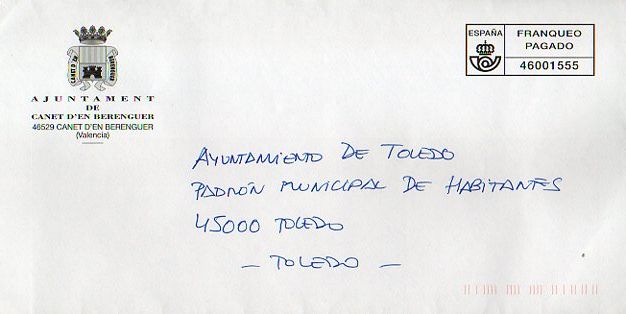 CANET D'EN BERENGUER
AJUNTAMENT
DE
CANET D'EN BERENGUER
46529 CANET D'EN BERENGUER
(Valencia)
ESPAÑA
FRANQUEO
PAGADO
46001555
AYUNTAMIENTO DE TOLEDO
PADRÓN MUNICIPAL DE HABITANTES
45000 TOLEDO
- TOLEDO -